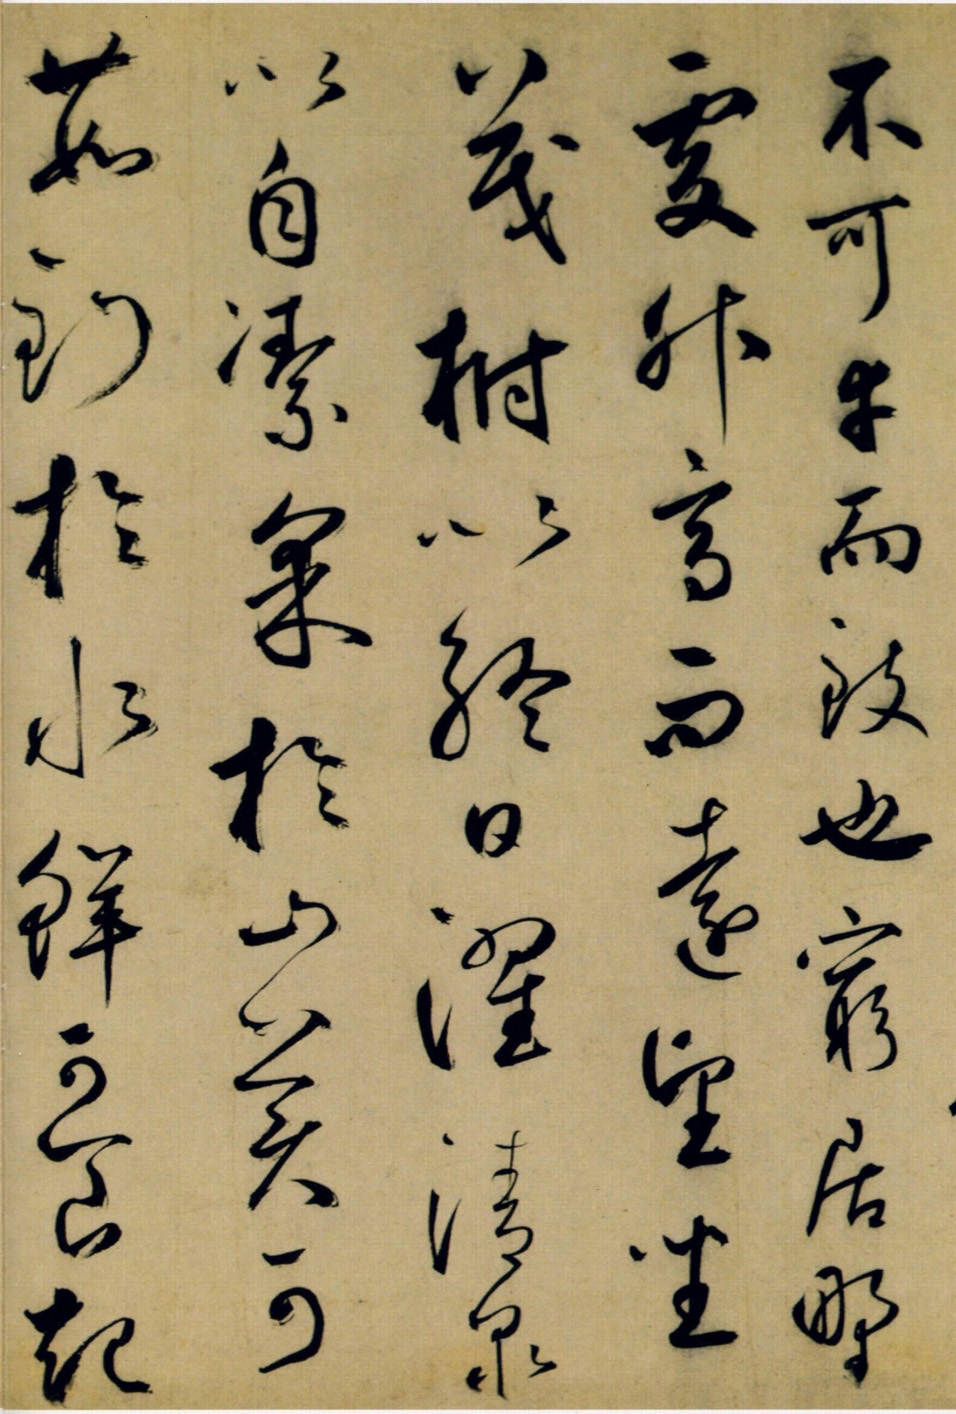 不可幸而致也窮居野
處升高而遠望坐
茂樹以終日濯清泉
以自潔采於山美可
茹釣於水鮮可食起